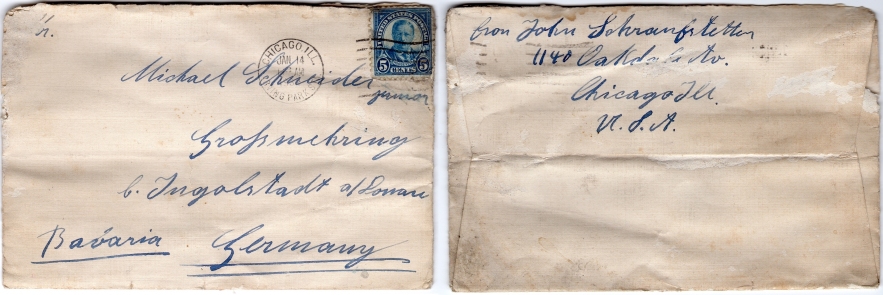 CHICAGO ILL.
JAN 14
PARK
UNITED STATES POSTAGE
5 CENTS 5
Michael Schneider
junior
Großmehring
b. Ingolstadt a/Donau
Bavaria Germany
from John Schraufstetter
1140 Oakdale Av.
Chicago Ill.
U.S.A.